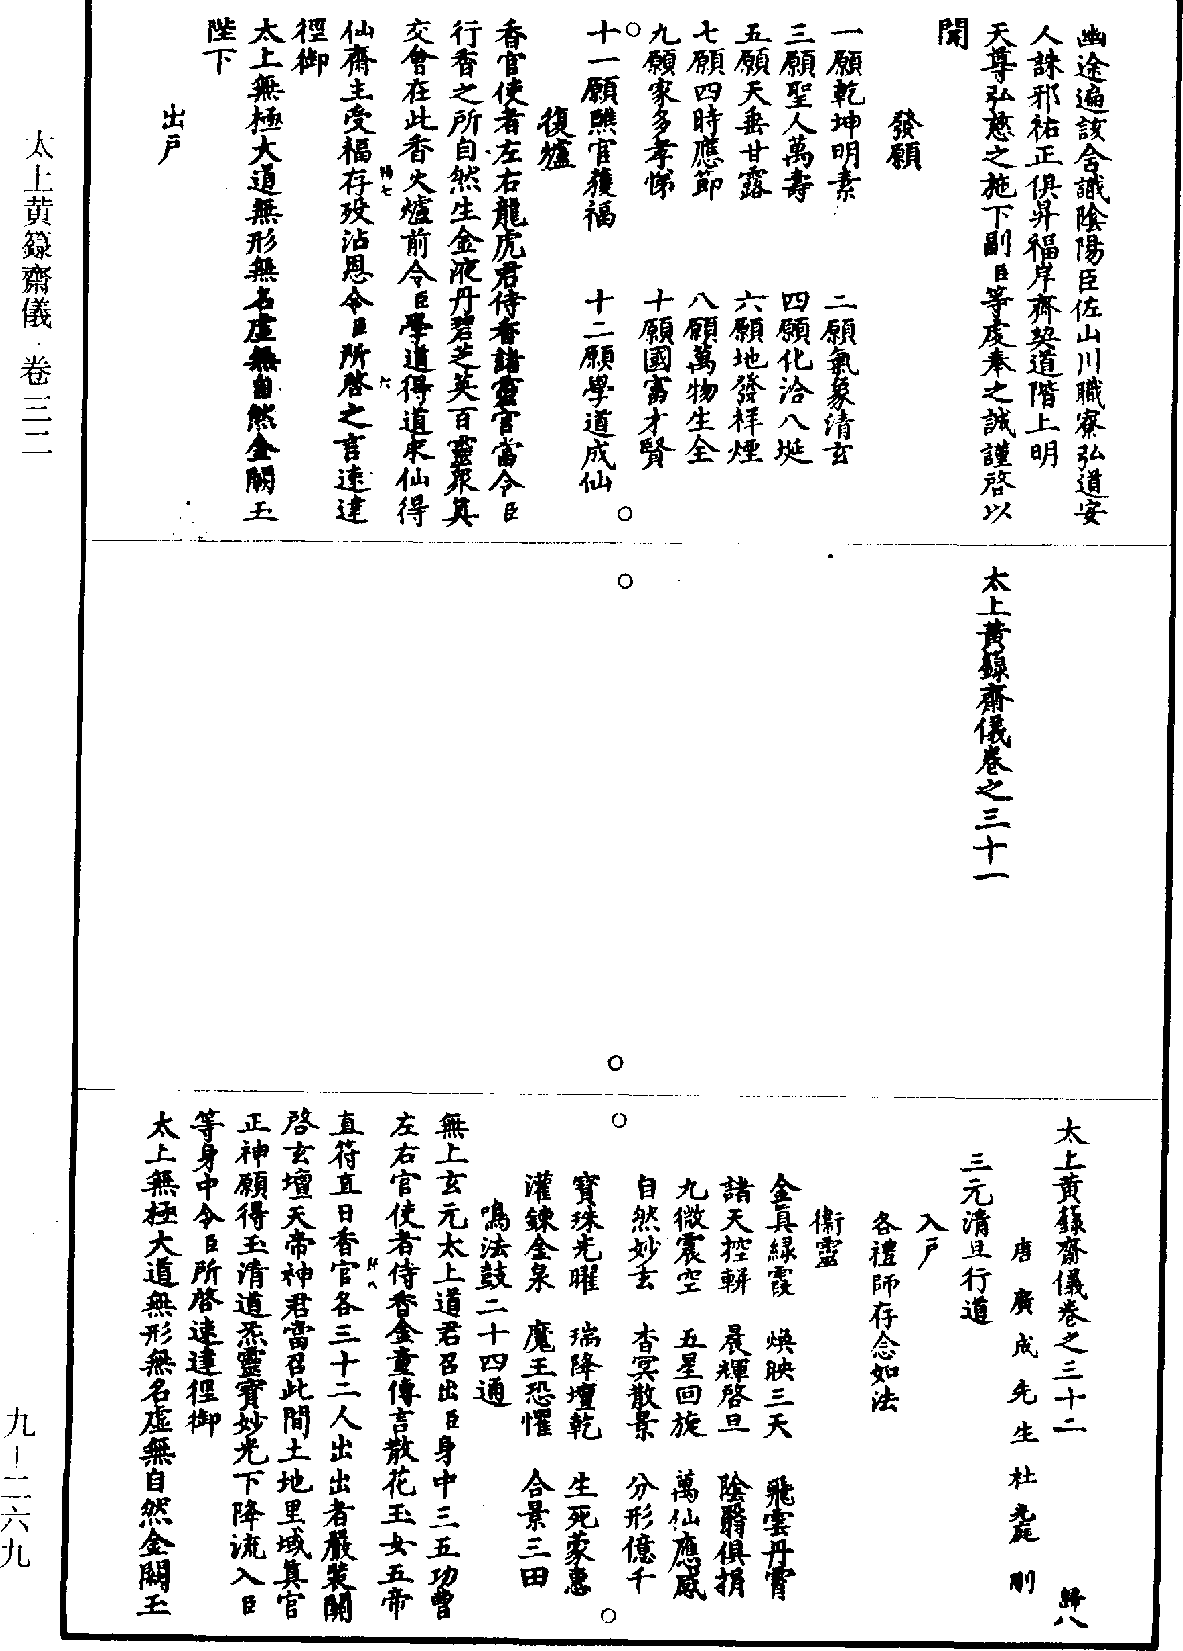 幽途遍該含識陰陽臣佐山川職寮弘道安
人誅邪祐正俱昇福岸齊契道階上明
天尊弘慈之施下副臣等虔奉之誠謹啓以
聞
發願
一願乾坤明素　二願氣象清玄
三願聖人萬壽　四願化洽八埏
五願天垂甘露　六願地發祥煙
七願四時應節　八願萬物生全
九願家多孝悌　十願國富才賢
十一願醮官獲福　十二願學道成仙
復爐
香官使者左右龍虎君侍香諸靈官當令臣
行香之所自然生金液丹碧芝英百靈衆真
交會在此香火爐前令臣學道得道求仙得
仙齋主受福存殁沾恩令臣所啓之言速達
徑御
太上無極大道無形無名虛無自然金闕玉
陛下
出戶
太上黃籙齋儀卷之三十一
太上黃籙齋儀卷之三十二
唐廣成先生杜光庭刪　歸八
三元清旦行道
入戶
各禮師存念如法
衞靈
金真綠霞　煥映三天　飛雲丹霄
諸天控軿　晨輝啓旦　陰翳俱捐
九微震空　五星回旋　萬仙應感
自然妙玄　杳冥散景　分形億千
寶珠光曜　瑞降壇乾　生死蒙惠
灌鍊金泉　魔王恐懼　合景三田
鳴法鼓二十四通
無上玄元太上道君召出臣身中三五功曹
左右官使者侍香金童傳言散花玉女五帝
直符直日香官各三十二人出出者嚴裝關
啓玄壇天帝神君當召此間土地里域真官
正神願得玉清道炁靈寶妙光下降流入臣
等身中令臣所啓速達徑御
太上無極大道無形無名虛無自然金闕玉
太上黄籙齋儀·卷三二
九—二六九